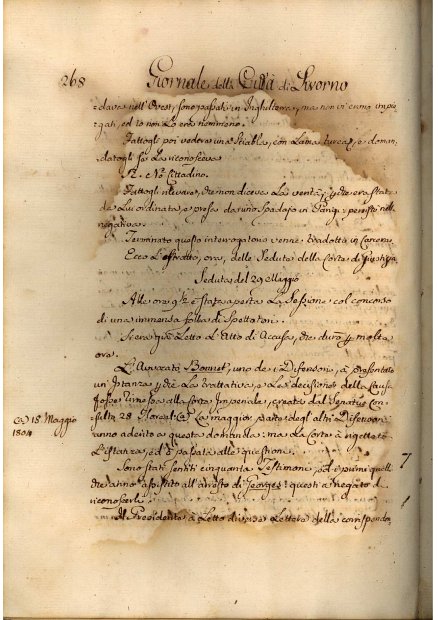 268 Giornale della Città di Livorno
dava nell'Ovest, sono passati in Inghilterra, ma non vi erano impie
gati, ed Io non Lo era nemmeno.
Fattogli poi vedere una Sciabla, con Lama turca, e doman,
datogli se La riconosceva
R. No Cittadino.
Fattogli rilevare, che non diceva La verità
da Lui ordinata, e presa da uno Spadajo in Parigi: persistè nella
negativa.
Terminato questo interrogatorio venne tradotto in Carcere.
Ecco L'estratto, ora, delle Sedute della Corte di Giustizia
Seduta del 29 Maggio
Alle ore 9½ è stata aperta La Sessione col concorso
di una immensa folla di Spettatori.
Si era quì Letto L'Atto di Accusa, che durò più molte
ore.
L'Avvocato Bonnet, uno dei Difensori, à presentato
un'Istanza perchè La trattativa, e La decisione della Causa
fosse rimessa alla Corte Imperiale, creata dal Senatus Con
sulto 28 Floreal: (a) La maggior parte degli altri Difensori
anno aderito a questa domanda: ma La Corte à rigettato
L'Istanza, ed è passata alle questioni.
(a) 18 Maggio
1804
Sono stati sentiti cinquanta Testimonj, ed i primi quelli
che anno assistito all'arresto di Georges: questi à negato di
riconoscerli.
Il Presidente à Letto diverse Lettere della corrispondenz